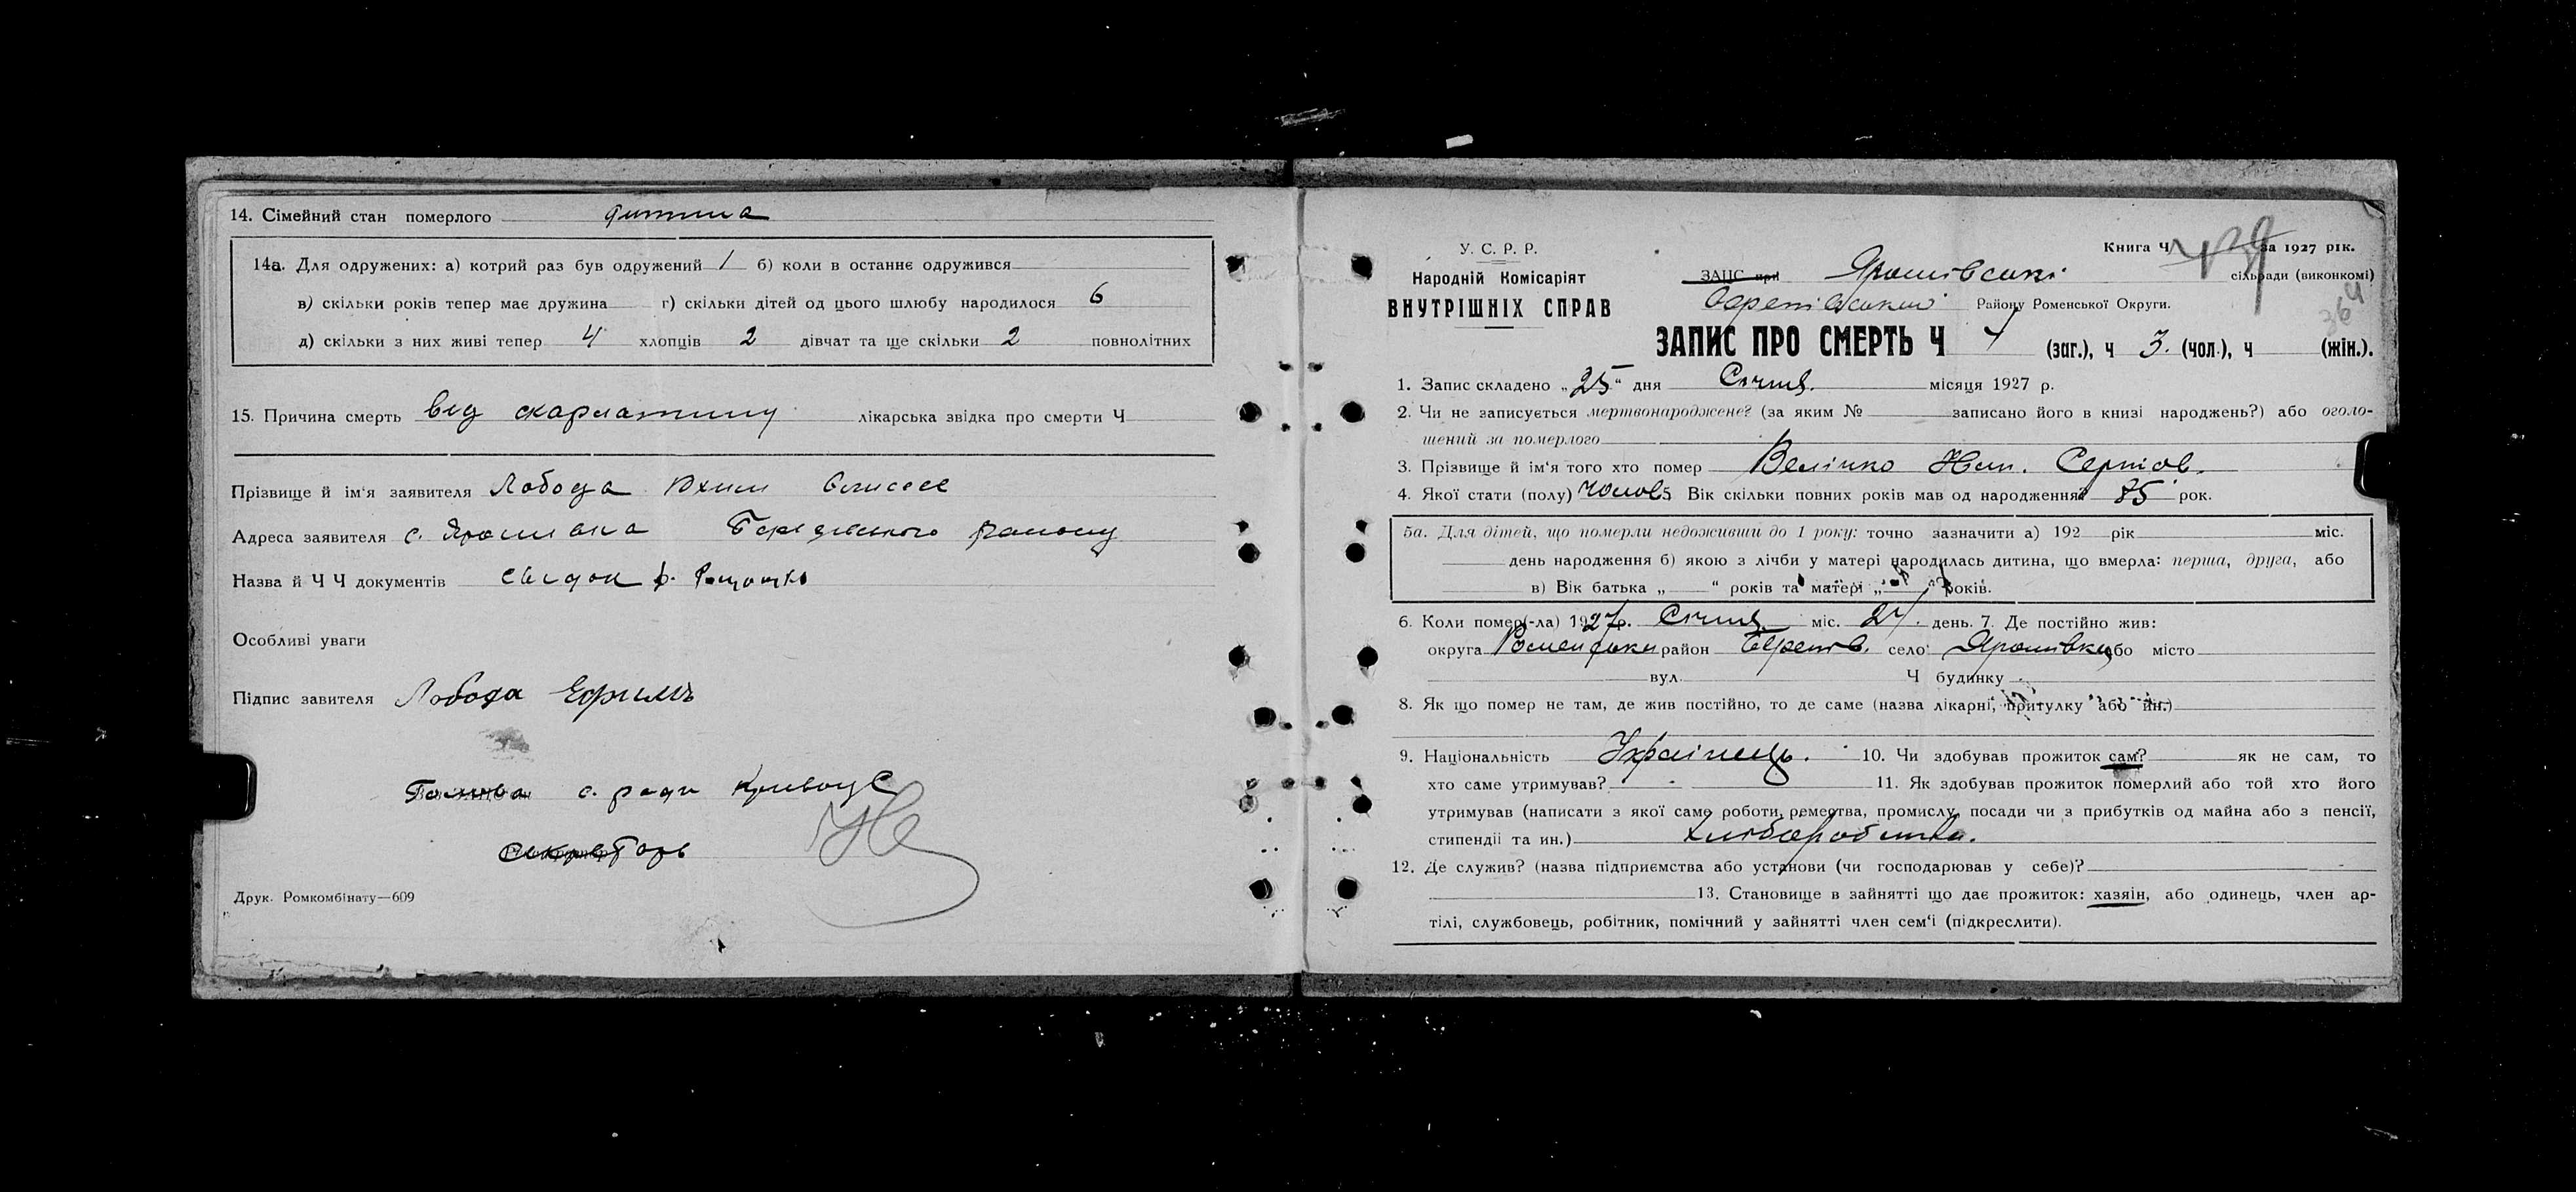 14. Сімейний стан померлого дитина
14а. Для одружених: а) котрий раз був одружений 1 б) коли в останнє одружився
в) скільки років тепер має дружина г) скільки дітей од цього шлюбу народилося 6
д) скільки з них живі тепер 4 хлопців 2 дівчат та ще скільки 2 повнолітних
15. Причина смерть від скарлатини лікарська звідка про смерти Ч
Прізвище й ім'я заявителя Лобода Юхим
Адреса заявителя с. Ярошівка району
Назва й Ч Ч документів
Особливі уваги
Підпис завителя Лобода Ефимъ
Голова с. ради
Секретарь
Друк. Ромкомбінату—609
Книга Ч за 1927 рік.
У. С. Р. Р.
Народній Комісаріят
ВНУТРІШНІХ СПРАВ
ЗАЦС при Ярошівські сільради (виконкомі)
Району Роменської Округи.
364
ЗАПИС ПРО СМЕРТЬ Ч 4 (заг.), ч 3. (чол.), ч (жін.).
1. Запис складено „25" дня Січня. місяця 1927 р.
2. Чи не записується мертвонароджене? (за яким № записано його в книзі народжень?) або оголо-
шений за померлого
3. Прізвище й ім'я того хто помер Велічко Сергіов.
4. Якої стати (полу) чолов 5. Вік скільки повних років мав од народження? 85 рок.
5а. Для дітей, що померли недоживши до 1 року: точно зазначити а) 192 рік міс.
день народження б) якою з лічби у матері народилась дитина, що вмерла: перша, друга, або
в) Вік батька „ " років та матері „ " років.
6. Коли помер(-ла) 1927р. Січня міс. 24. день. 7. Де постійно жив:
округа Роменськи район село Ярошівка або місто
вул. Ч будинку
8. Як що помер не там, де жив постійно, то де саме (назва лікарні, притулку або ин.)
9. Національність Українець. 10. Чи здобував прожиток сам? як не сам, то
хто саме утримував? 11. Як здобував прожиток померлий або той хто його
утримував (написати з якої саме роботи, ремества, промислу, посади чи з прибутків од майна або з пенсії,
стипендії та ин.) хліборобства.
12. Де служив? (назва підприємства або установи (чи господарював у себе)?
13. Становище в зайнятті що дає прожиток: хазяїн, або одинець, член ар-
тілі, службовець, робітник, помічний у зайнятті член сем'ї (підкреслити).